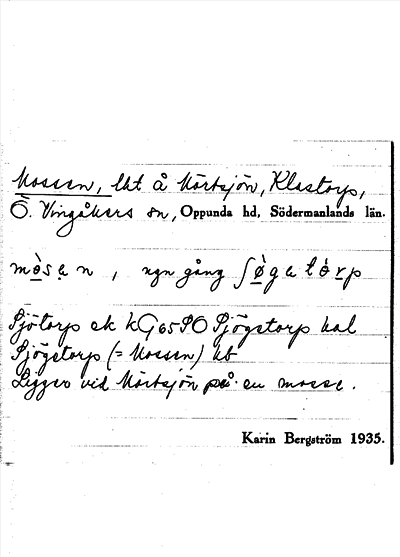 Mossen, lht å Mörtsjön, Klastorp,
Ö. Vingåkers sn, Oppunda hd, Södermanlands län.
mò̱sa̤n, ngn gång ʃø̱̀gatò̱rp
Sjötorp ek kG65SO Sjögstorp hal
Sjögstorp (= Mossen) kb
Ligger vid Mörtsjön på en mosse.
Karin Bergström 1935.